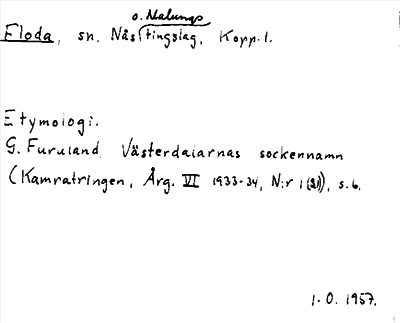 o. Malungs
Floda, sn. Nås tingslag, Kopp. l.
Etymologi.
G. Furuland, Västerdalarnas sockennamn
(Kamratringen, Årg. VI 1933-34, N:r 1 (21)), s. 6.
1. O. 1957.